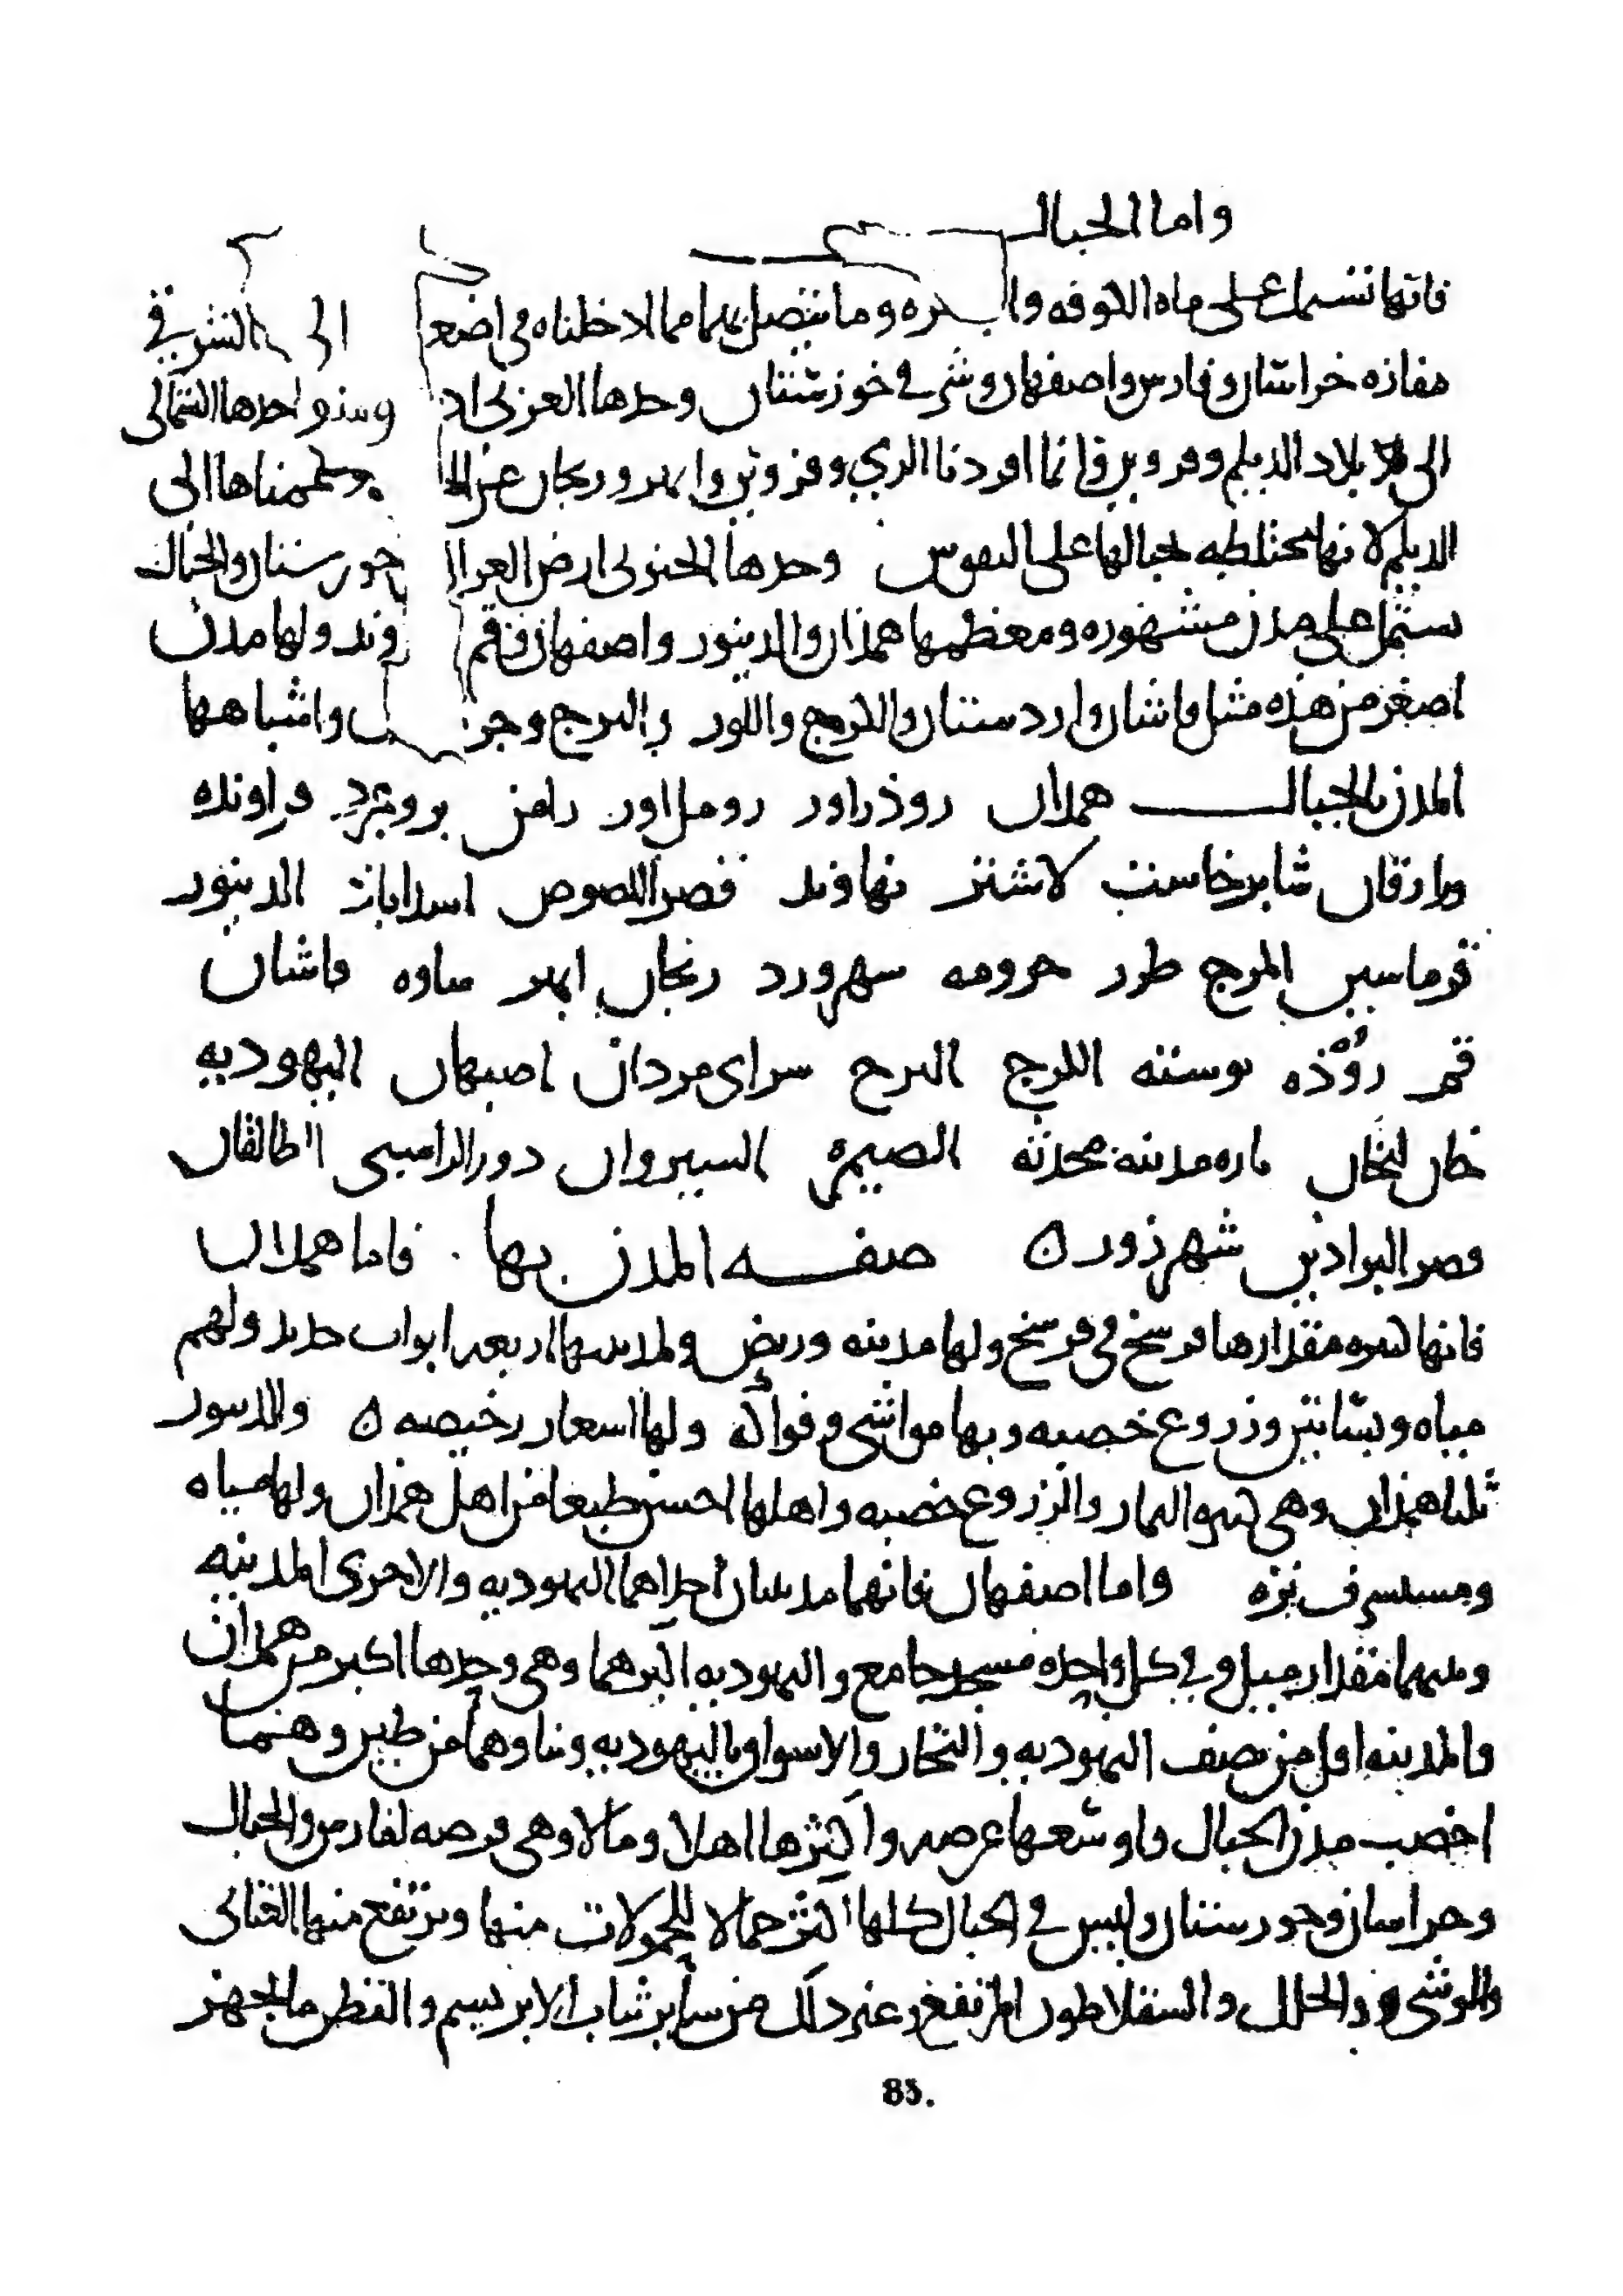 واما الجبال
فانها تشتمل على ماه الكوفه والبصره وما يتصل بهما مما ادخلناه في اضعا الى الشرقي
مفازه خراسان وفارس واصفهان وشرقي خوزستان وحدها الغربى اذ وحدها الشمالى
الى بلاد الديلم وقزوين وانما افردنا الري وقزوين وابهر وزنجان عن الجبا وضممناها الى
الديلم لانها مختلطه بجبالها على التقوس وحدها الجنوبى ارض العرا خورستان والجبال
تشتمل على مدن مشهوره ومعظمها همذان والدينور واصفهان وقم ولها مدن
اصغر من هذه مثل قاشان واردستان والكرج واللور والبرج وجر واشباهها
المدن بالجبال همدان روذراور رامن بروجرد فراونده
شابرخاست لاشتر نهاوند قصر اللصوص اسداباذ الدينور
قرماسين المرج طزر حرومه سهرورد زنجان ابهر ساوه قاشان
قم روذه بوسته الكرج البرج سراى مردان اصبهان اليهوديه
خان لنجان باره مدينه محدثه الصيمره السيروان دور الراسبى الطالقان
قصر البراذين شهرزور ن صفه المدن بها . فاما همدان
فانها كبيره مقدارها فرسخ في فرسخ ولها مدينه وربض ولمدينتها اربعه ابواب حديد ولهم
مياه وبساتين وزروع خصبه وبها مواشى وفواكه ولها اسعار رخيصه ن والدينور
ثلثا همذان وهى كثيره الثمار والزروع خصبه واهلها احسن طبعا من اهل همذان ولها مياه
ومستشرف نزه واما اصفهان فانها مدينتان احداهما اليهوديه والاخرى المدينه
وبينهما مقدار ميل وفي كل واحده مسجد جامع واليهوديه اكبرهما وهى وحدها اكبر من همدان
والمدينه اقل من نصف اليهوديه والتجار والاسواق باليهوديه وبناوهما من طين وهما
اخصب مدن الجبال واوسعها عرصه واكثرها اهلا ومالا وهى فرصه لفارس والجبال
وخراسان وخورستان وليس في الجبال كلها اكثر جمالا للحمولات منها ويرتفع منها العتابى
والوشى والحلل والسقلاطون المرتفع وغير ذلك من ساير ثياب الابريسم والقطن ما يجهز
85.